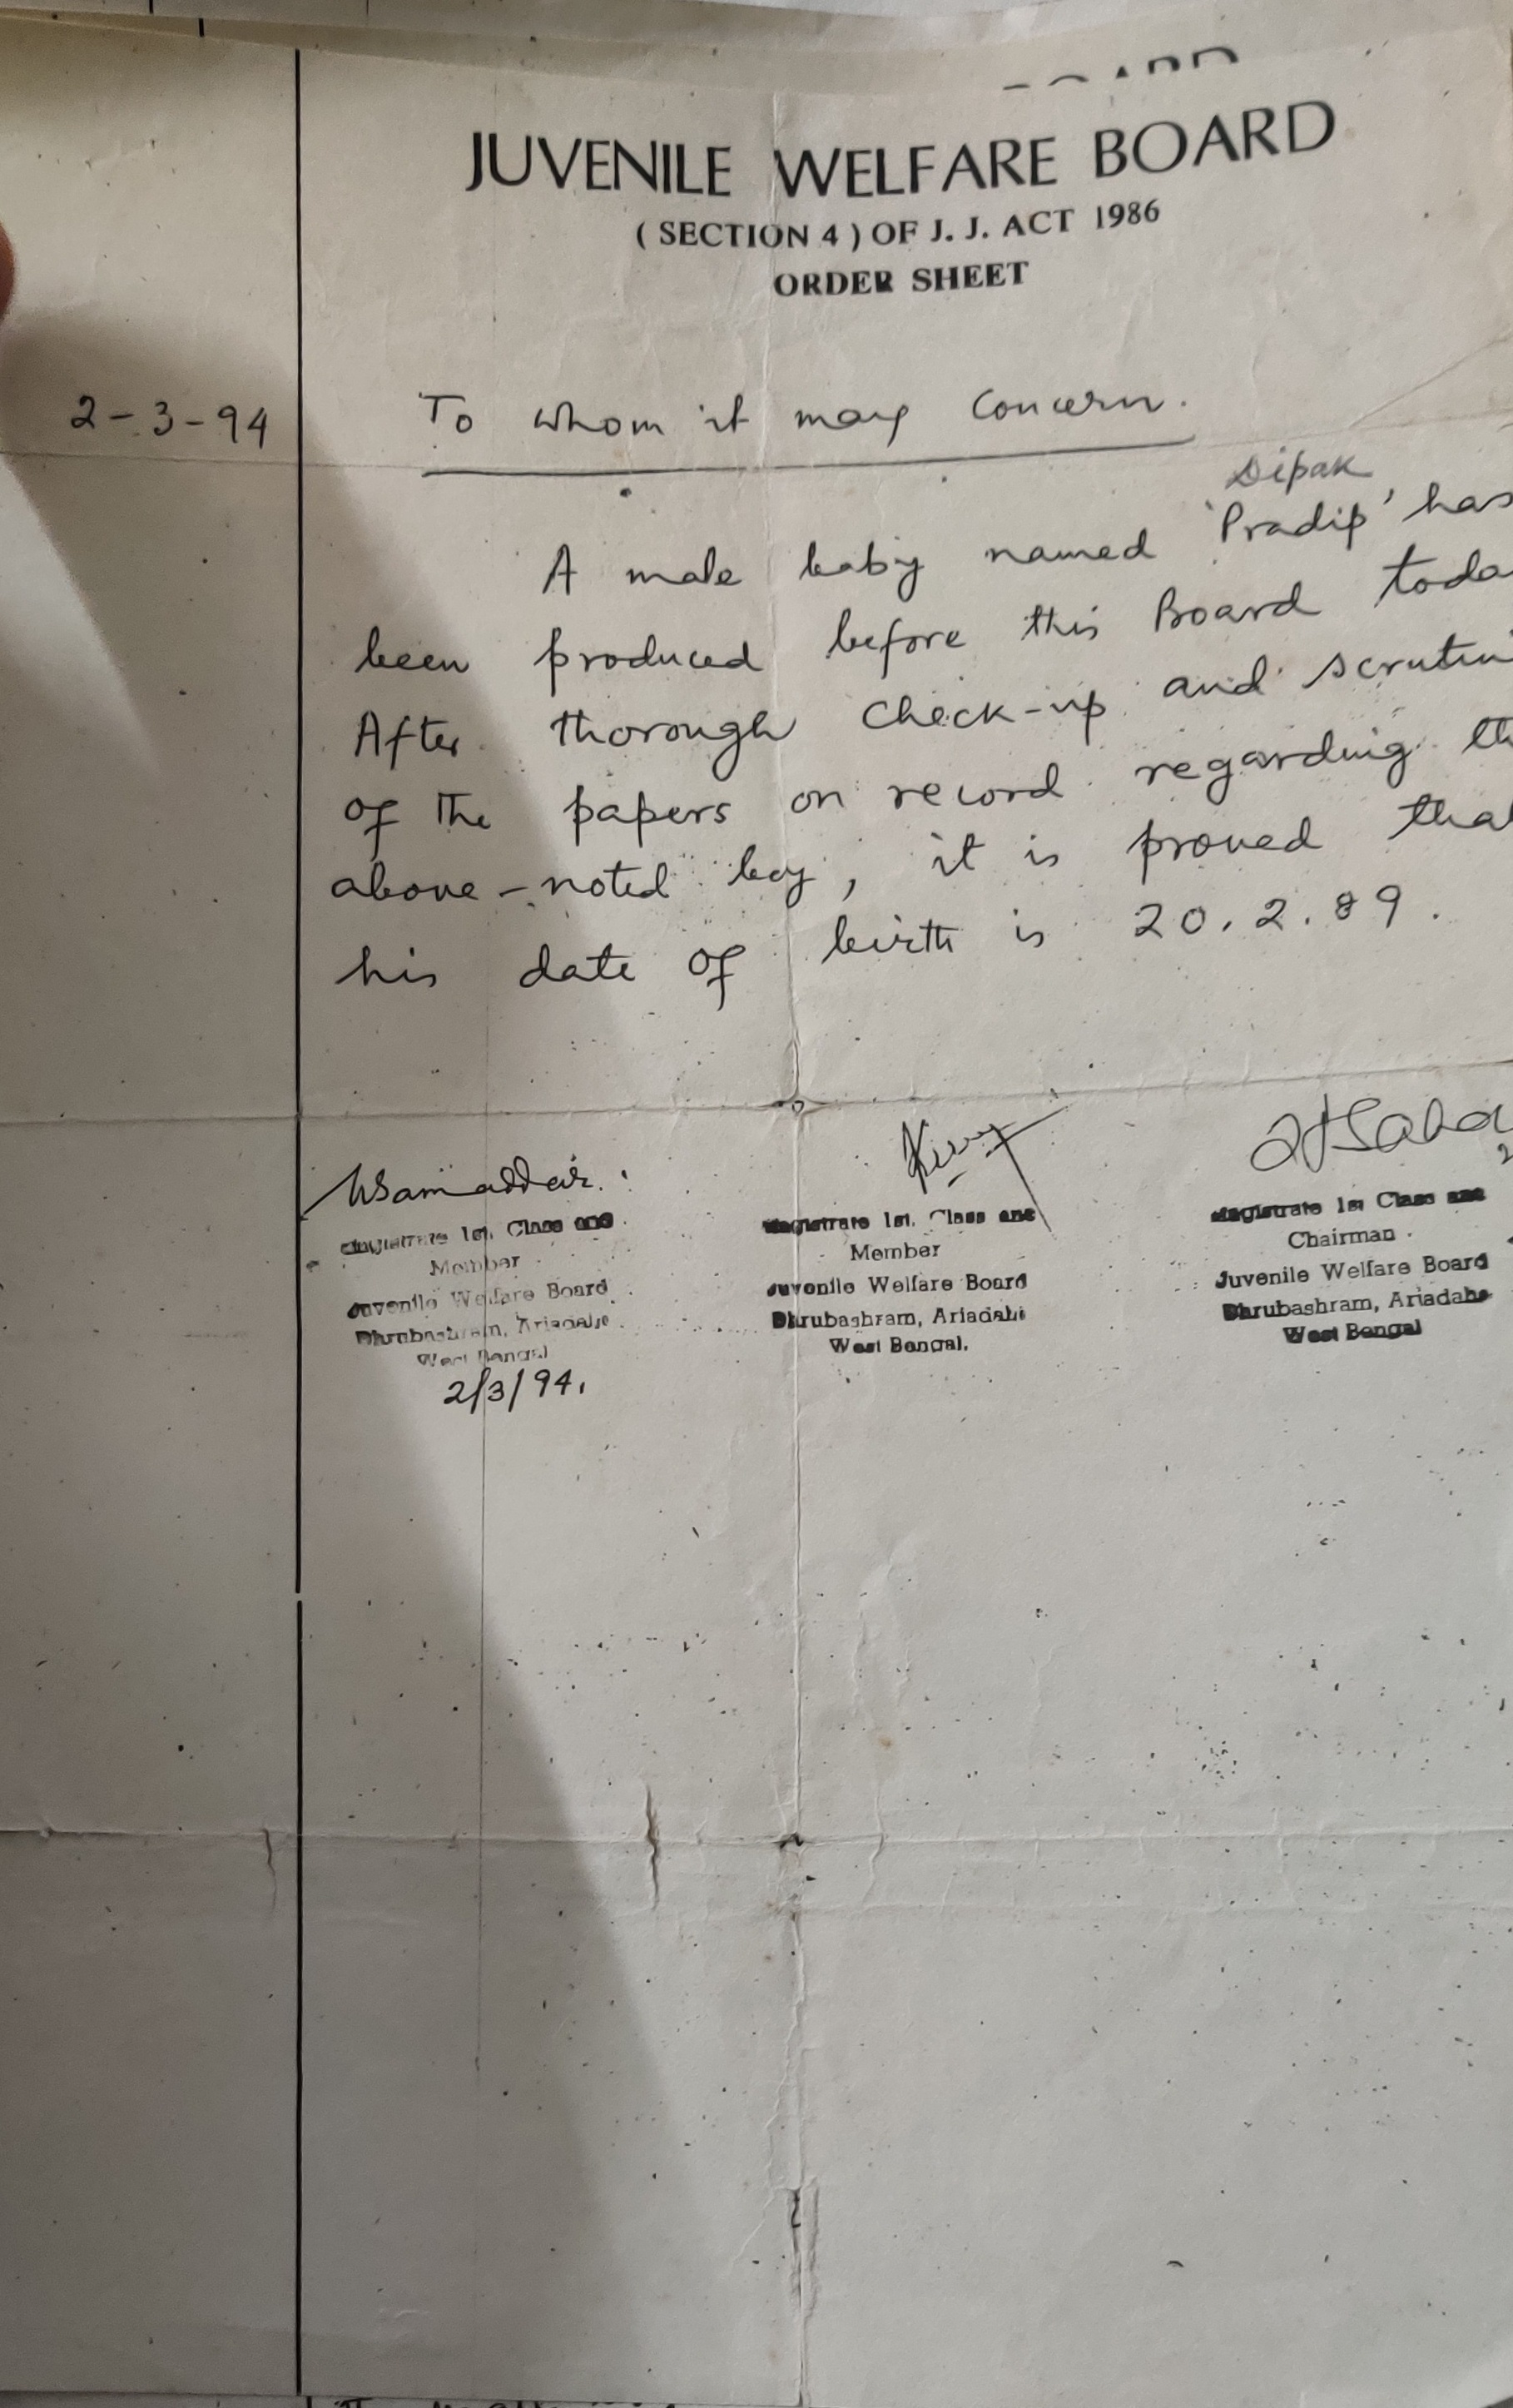 JUVENILE WELFARE BOARD
( SECTION 4 ) OF J. J. ACT 1986
ORDER SHEET
2-3-94
To whom it may concern.
Dipak
A male baby named 'Pradip' has
been produced before this Board toda
After thorough check-up and scrutin
of the papers on record regarding th
above-noted boy, it is proved that
his date of birth is 20.2.89.
Magistrate 1st. Class and
Member
Juvenile Welfare Board
Dhrubashram, Ariadaha
West Bengal
2/3/94.
Magistrate 1st. Class and
Member
Juvenile Welfare Board
Dhrubashram, Ariadaha
West Bengal.
Saha
Magistrate 1st Class and
Chairman
Juvenile Welfare Board
Dhrubashram, Ariadaha
West Bengal